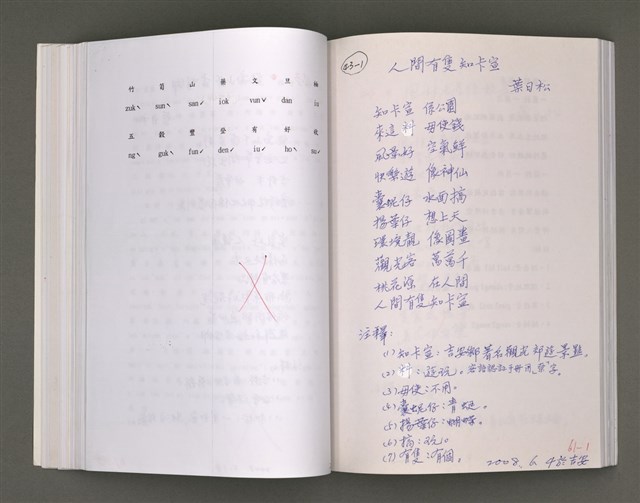 竹 筍 山 藥 文 旦 柚
zukˋ sunˋ sanˊ iok vunˇ dan iu
五 穀 豐 登 有 好 收
ngˋ gukˋ funˊ denˊ iuˊ hoˋ suˊ
43-1
人間有隻知卡宣
葉日松
知卡宣 係公園
來這 毋使錢
風景好 空氣鮮
快樂遊 像神仙
囊蜺仔 水面搞
揚葉仔 想上天
環境靚 像圖畫
觀光客 萬萬千
桃花源 在人間
人間有隻知卡宣
注釋:
(1)知卡宣:吉安鄉著名觀光郊遊景點。
(2) :遊玩。客語認証手冊用 字。
(3)毋使:不用。
(4)囊蜺仔:青蜓。
(5)揚葉仔:蝴蝶。
(6)搞:玩。
(7)有隻:有個。
61-1
2008. 6. 4於吉安